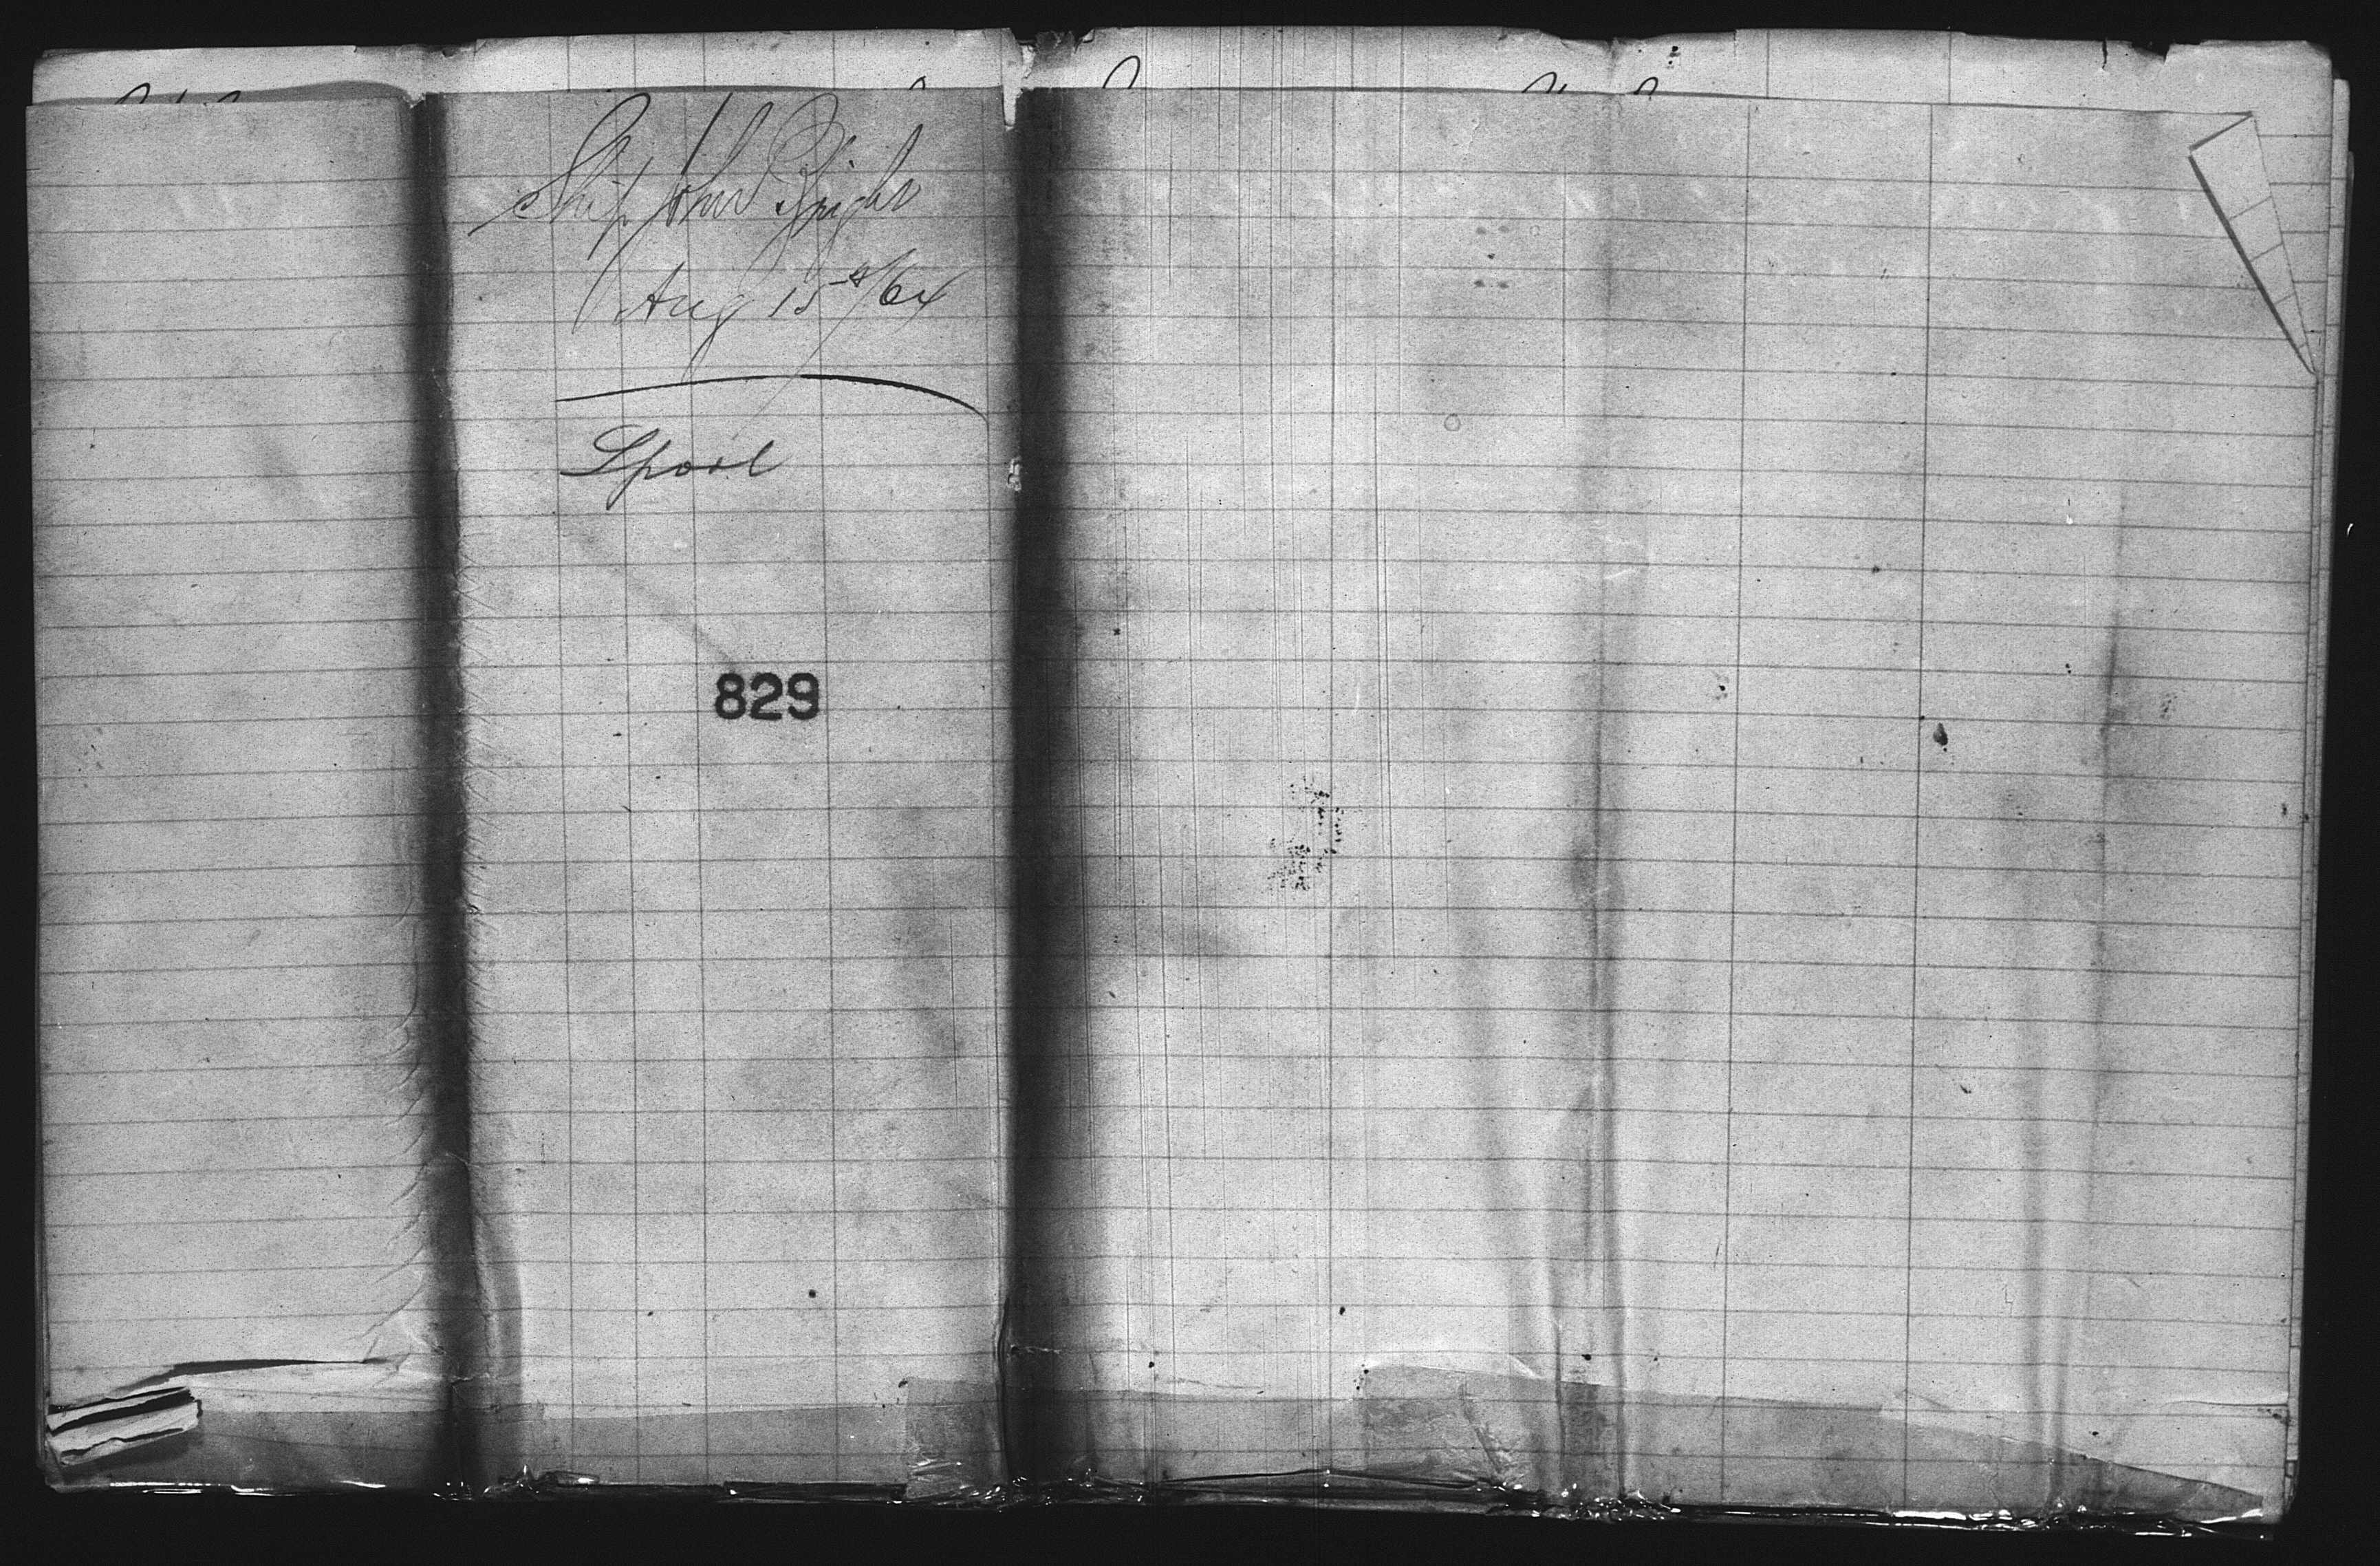 Ship John Bright
Aug 15th/64
Lpool
829